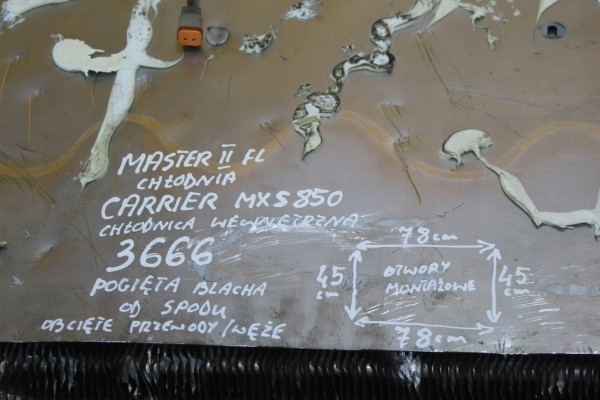 MASTER II FL
CHŁODNIA
CARRIER MXS850
CHŁODNICA WEWNĘTRZNA
3666
POGIĘTA BLACHA
OD SPODU
OBCIĘTE PRZEWODY/WĘŻE
78cm
45 cm
OTWORY
MONTAŻOWE
45 cm
78cm